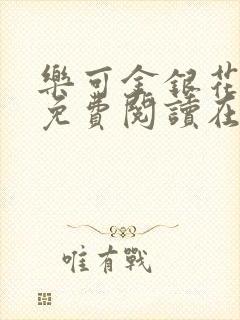 樂可金銀花
免費閱讀在
唯有戰